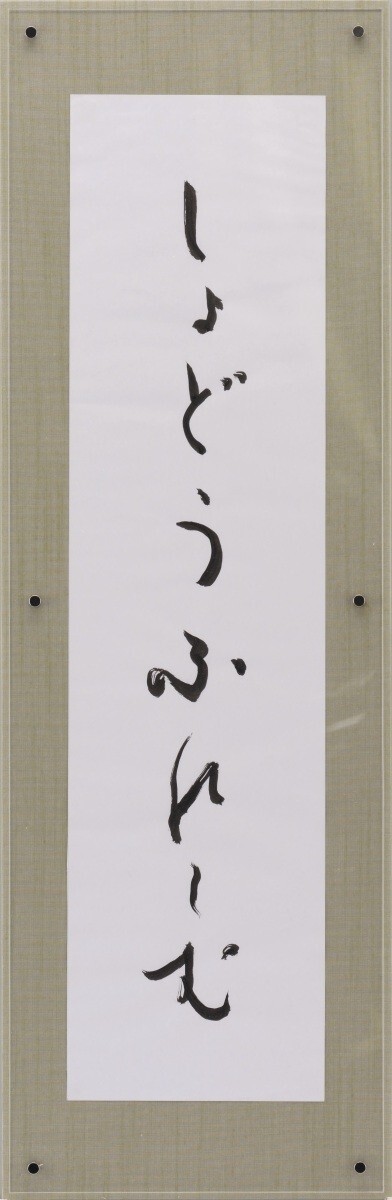 しょどうふれーむ